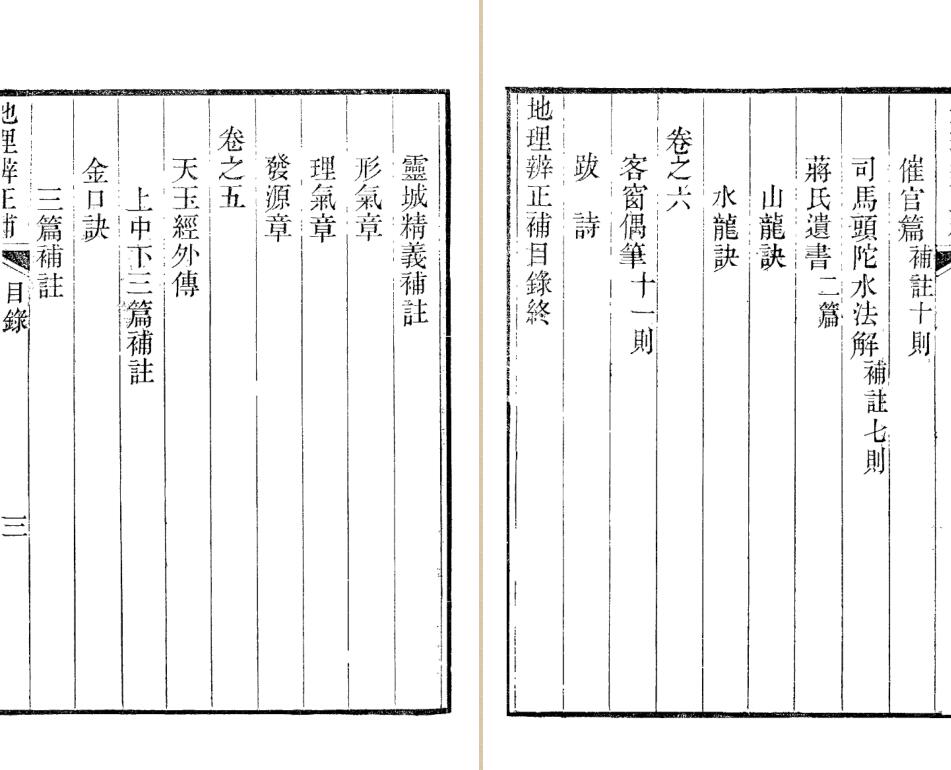 靈城精義補註
形氣章
理氣章
發源章
卷之五
天玉經外傳
上中下三篇補註
金口訣
三篇補註
地理辨正補 目錄 三
催官篇 補註十則
司馬頭陀水法解 補註七則
蔣氏遺書 二篇
山龍訣
水龍訣
卷之六
客窗偶筆 十一則
跋 詩
地理辨正補目錄終